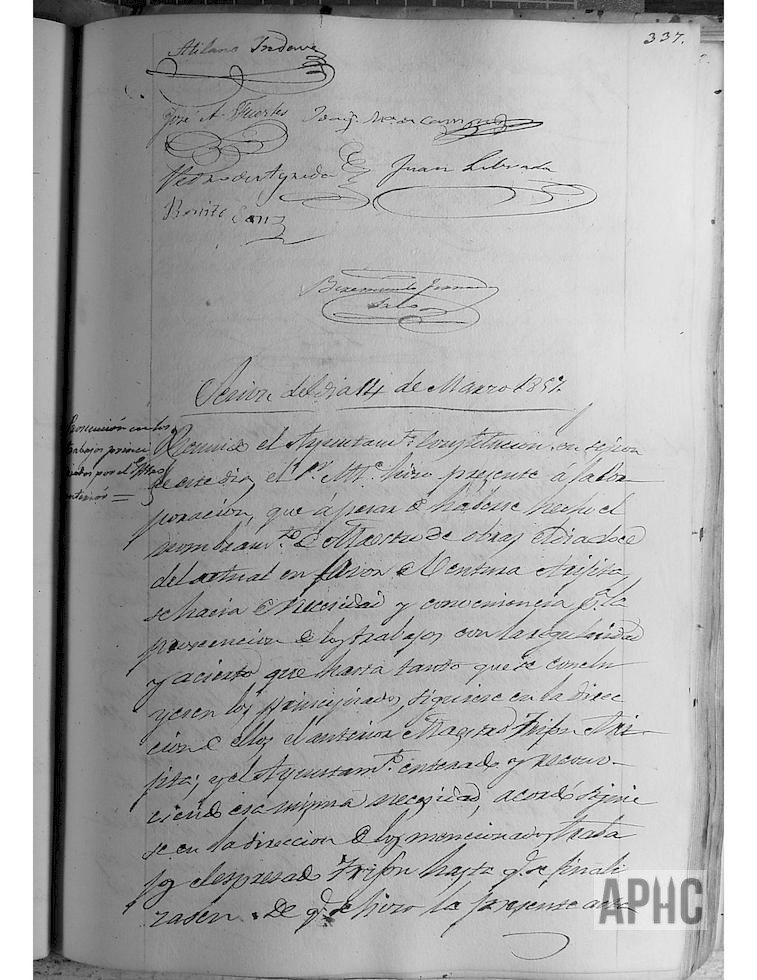 337.
Atilano
José A. Fuertes
Juan Librada
Benito Sanz
Sesion del dia 14 de Marzo 1857
Prosecución en los
trabajos princi
piados por el
anterior =
Reunido el Ayuntamto. Constitucional en sesion
de este dia, el Sr. hizo presente á la Cor-
poracion, que á pesar de haberse hecho el
nombramto. de Maestro de obras el dia doce
del actual en favor de Ventura Arifita,
se hacia de necesidad y conveniencia para la
prosecucion de los trabajos con la regularidad
y acierto que hasta tanto que se conclu
yesen los principiados, siguiese en la direc
cion de ellos el anterior Maestro Trifon Ari-
fita; y el Ayuntamto. enterado y recono-
ciendo esa misma necesidad, acordó siguie
se en la direccion de los mencionados traba
jos el espresado Trifon hasta q. se finali
zasen. De q. se hizo la presente acta
APHC